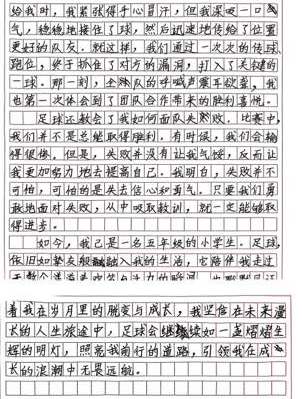 给我时，我紧张得手心冒汗，但我深吸一口
气，稳稳地接住了球，然后迅速地传给了位置
更好的队友。就这样，我们通过一次次的传球
跑位，终于抓住了对方的漏洞，打入了关键的
一球。那一刻，全队的呼喊声震耳欲聋，我
也第一次体会到了团队合作带来的胜利喜悦。
足球还教会了我如何面队失败。比赛中，
我们并不是总能取得胜利。有时候，我们会输
得很惨。但是，失败并没有让我气馁，反而让
我更加努力地去提高自己。我明白，失败并不
可怕，可怕的是失去信心和勇气。只要我们勇
敢地面对失败，从中吸取教训，就一定能够取
得进步。
如今，我已是一名五年级的小学生。足球
依旧如挚友般融入我的生活，它陪伴我走过
着我在岁月里的蜕变与成长，我坚信在未来漫
长的人生旅途中，足球会继续如一盏熠熠生
辉的明灯，照亮我前行的道路，引领我在成
长的浪潮中无畏远航。